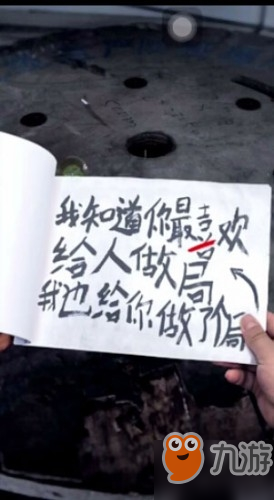 我知道你最喜欢
给人做局
我也给你做了局
九游